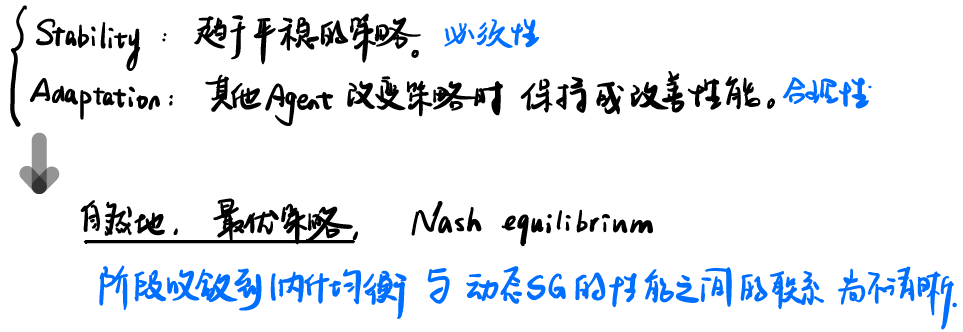 Stability: 趋于平稳的策略。必须性
Adaptation: 其他Agent改变策略时 保持或改善性能。合理性
自发地, 最优策略, Nash equilibrium
阶段收敛到纳什均衡 与 动态SG的性能之间的联系 尚不清晰.